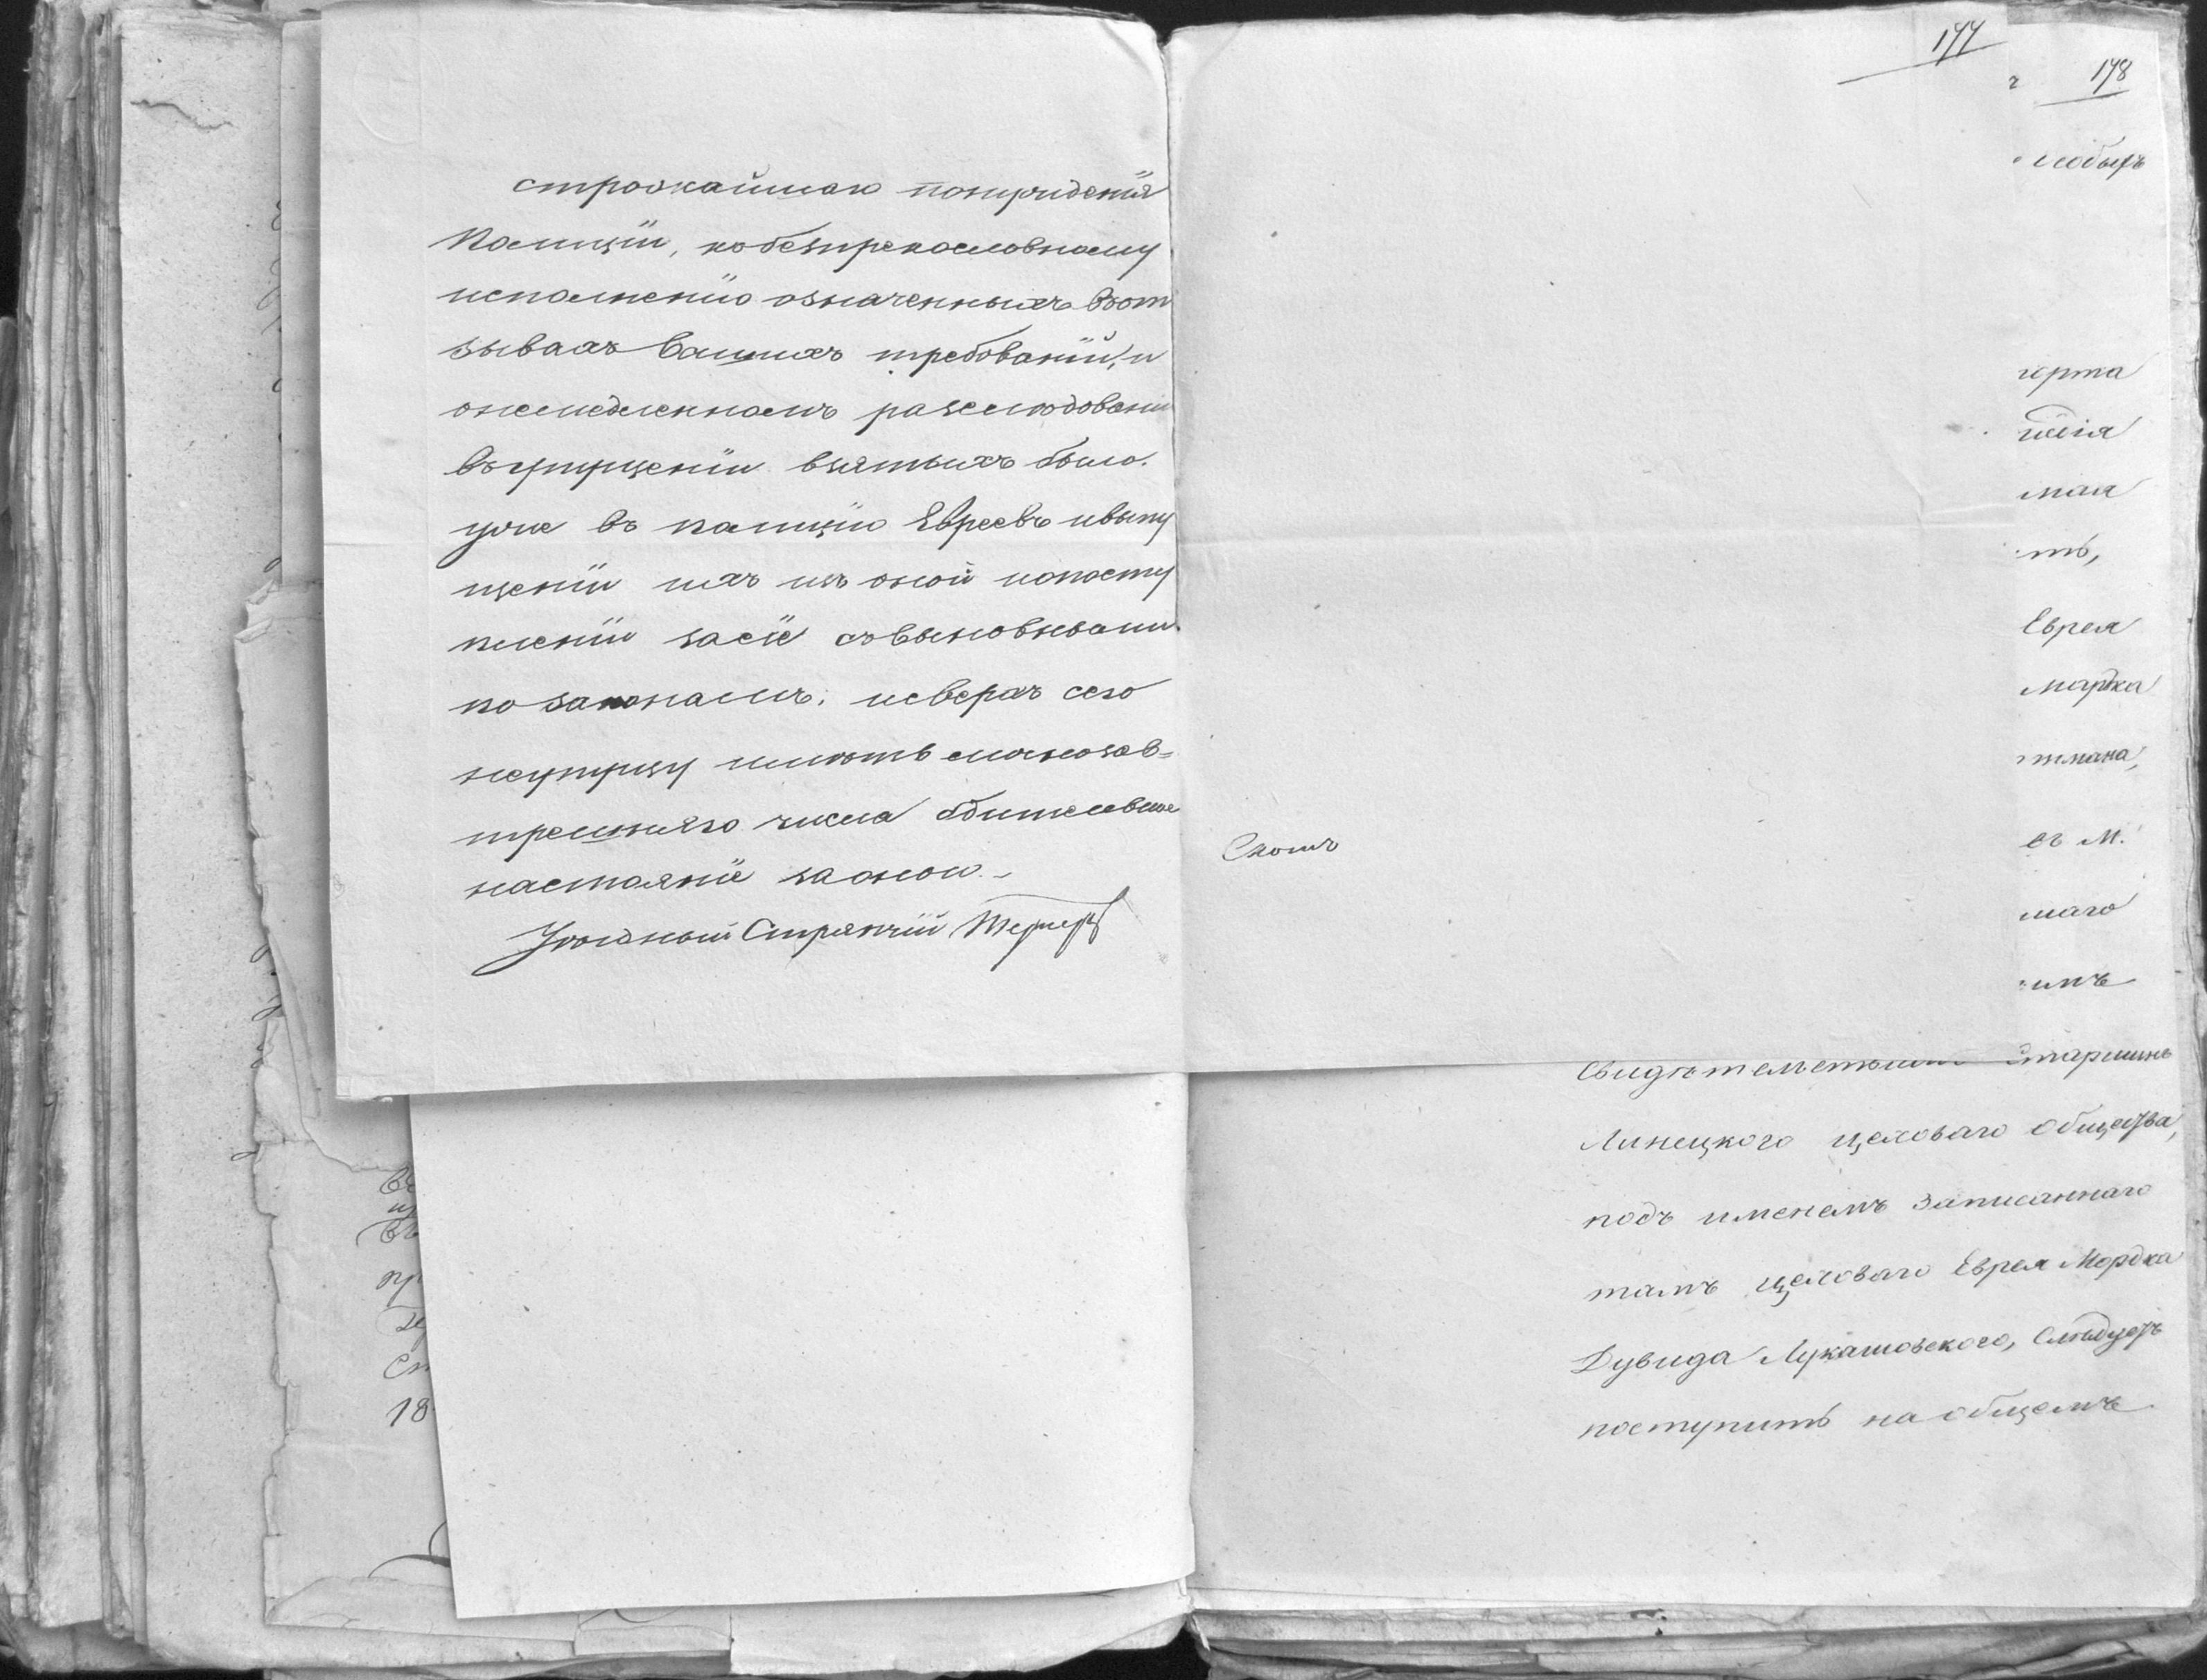 строжайшаго понужденія
Полиціи, къ безпрекословному
исполненію означенныхъ въ от
зывахъ Вашихъ требованій, и
о немедленномъ разслѣдованіи
въ упущеніи взятыхъ было
уже въ полицію Евреевъ и выпу
щеніи ихъ изъ оной и о посту
пленіи за сіе съ виновными
по законамъ; и сверхъ сего
не упущу имѣть съ моей
числа
настояніе за оною.
Уѣздный Стряпчій
177
Скопъ
178
Особыхъ
марта
мая
ть,
Еврея
Мордка
тмана,
въ М.
маго
имъ
Свидѣтельствомъ Старшинъ
Линецкого цеховаго общества,
подъ именемъ записаннаго
тамъ цеховаго Еврея Мордка
Дувида Лукашовского, Слѣдуетъ
поступить на общемъ
въ
пр
Ст
18